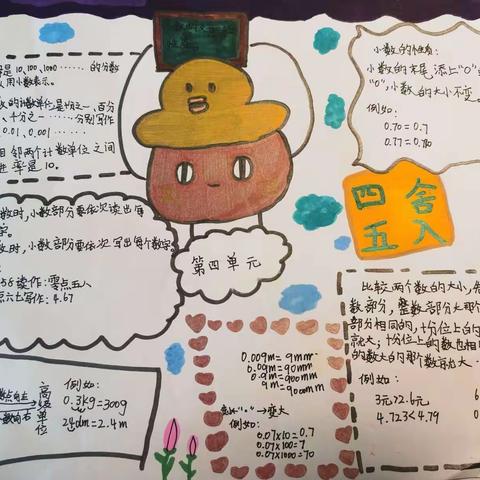 是10、100、1000……的分数
用小数表示。
的计数单位是十分之一、百分
、千分之一……分别写作
0.01、0.001……
相邻两个计数单位之间
进率是10。
小数的性质:
小数的末尾添上"0"
"0",小数的大小不变。
例如:
0.70=0.7
0.77=0.780
四舍
五入
数时,小数部分要依次读出每
数时,小数部分要依次写出每个数字
58读作:零点五八
点六七写作:4.67
第四单元
比较两个数的大小,先
数部分,整数部分大那个
部分相同的,十分位上的
就大;十分位上的数也相
的数大的那个数就大…
3元>2.6元
4.723<4.79
0.009m=9mm
0.09m=90mm
0.9m=900mm
9m=9000mm
→变大
例如:
0.07×10=0.7
0.07×100=7
0.07×1000=70
高级单位
例如:
0.3kg=300g
24dm=2.4m